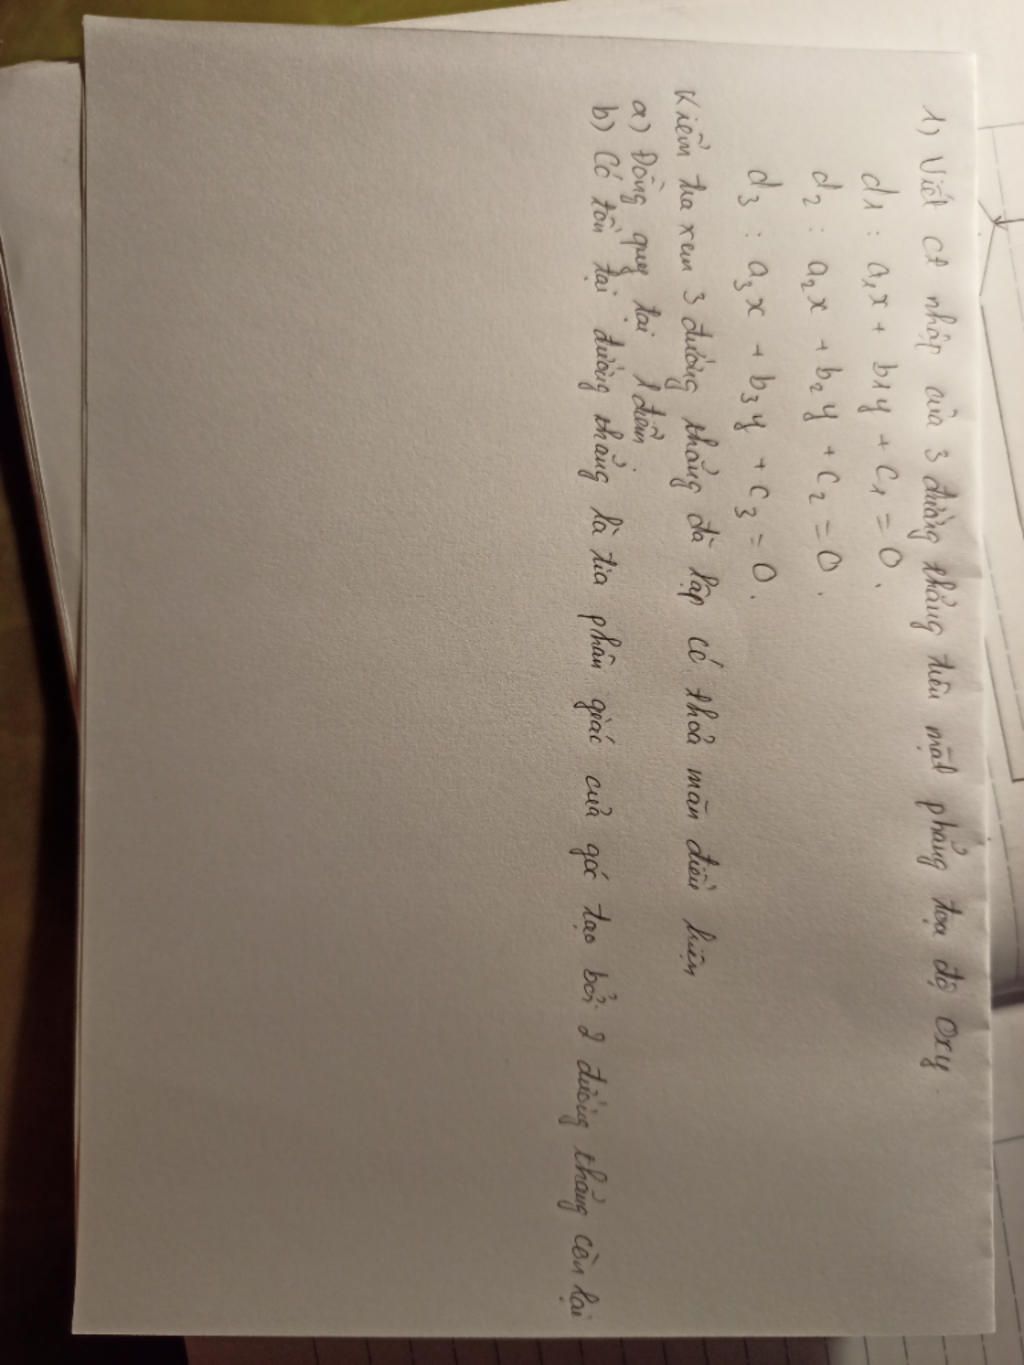 1) Viết ct nhập của 3 đường thẳng trên mặt phẳng tọa độ Oxy.
d1 : a1x + b1y + c1 = 0.
d2 : a2x + b2y + c2 = 0.
d3 : a3x + b3y + c3 = 0.
Kiểm tra xem 3 đường thẳng đã lập có thoả mãn điều kiện
a) Đồng quy tại 1 điểm
b) Có tồn tại đường thẳng là tia phân giác của góc tạo bởi 2 đường thẳng còn lại